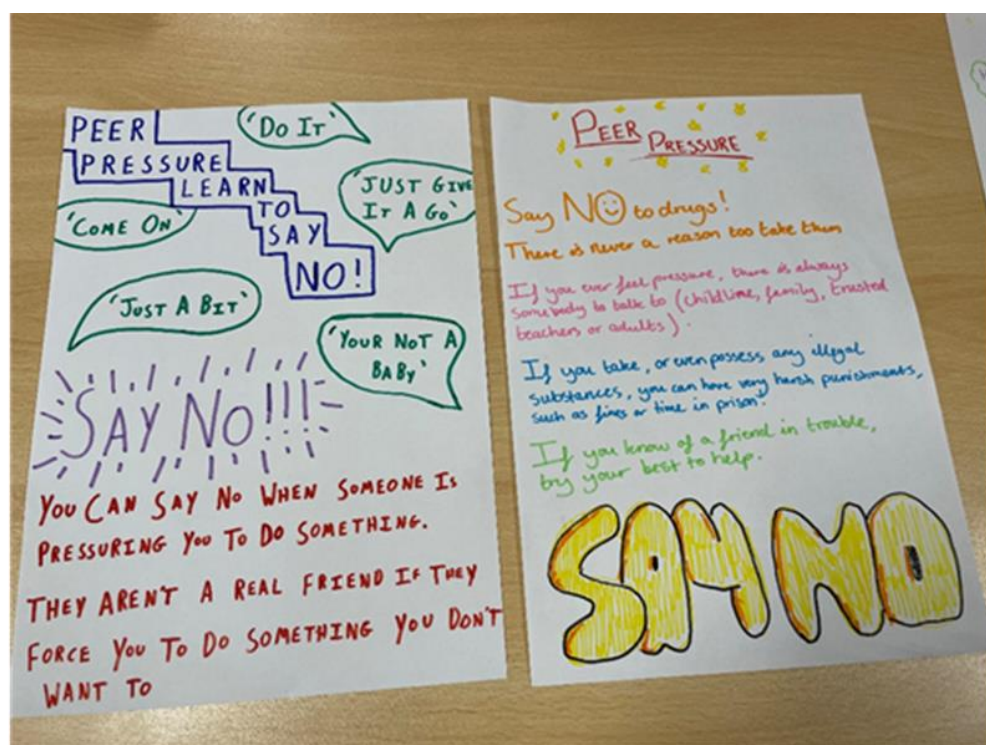 PEER
PRESSURE
LEARN
TO
SAY
NO!
'DO IT'
'JUST GIVE
IT A GO'
'COME ON'
'JUST A BIT'
'YOUR NOT A
BABY'
SAY NO!!!
YOU CAN SAY NO WHEN SOMEONE IS
PRESSURING YOU TO DO SOMETHING.
THEY AREN'T A REAL FRIEND IF THEY
FORCE YOU TO DO SOMETHING YOU DON'T
WANT TO
PEER
PRESSURE
Say NO to drugs!
There is never a reason too take them
If you ever feel pressure, there is always
somebody to talk to (childline, family, trusted
teachers or adults).
If you take, or even possess any illegal
substances, you can have very harsh punishments,
such as fines or time in prison.
If you know of a friend in trouble,
try your best to help.
SAY NO